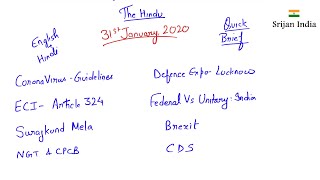 The Hindu
31st January 2020
English
&
Hindi
Quick
Brief
Srijan India
CoronaVirus - Guidelines
Defence Expo - Lucknow
ECI - Article 324
Federal Vs Unitary - India
Surajkund Mela
Brexit
NGT & CPCB
CDS